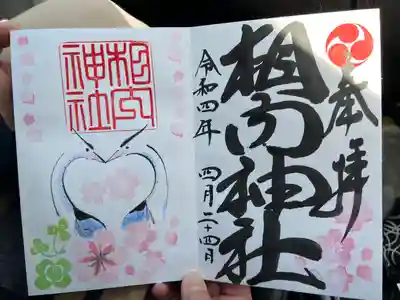 奉拝
相内神社
令和四年 四月二十四日
相内
神社